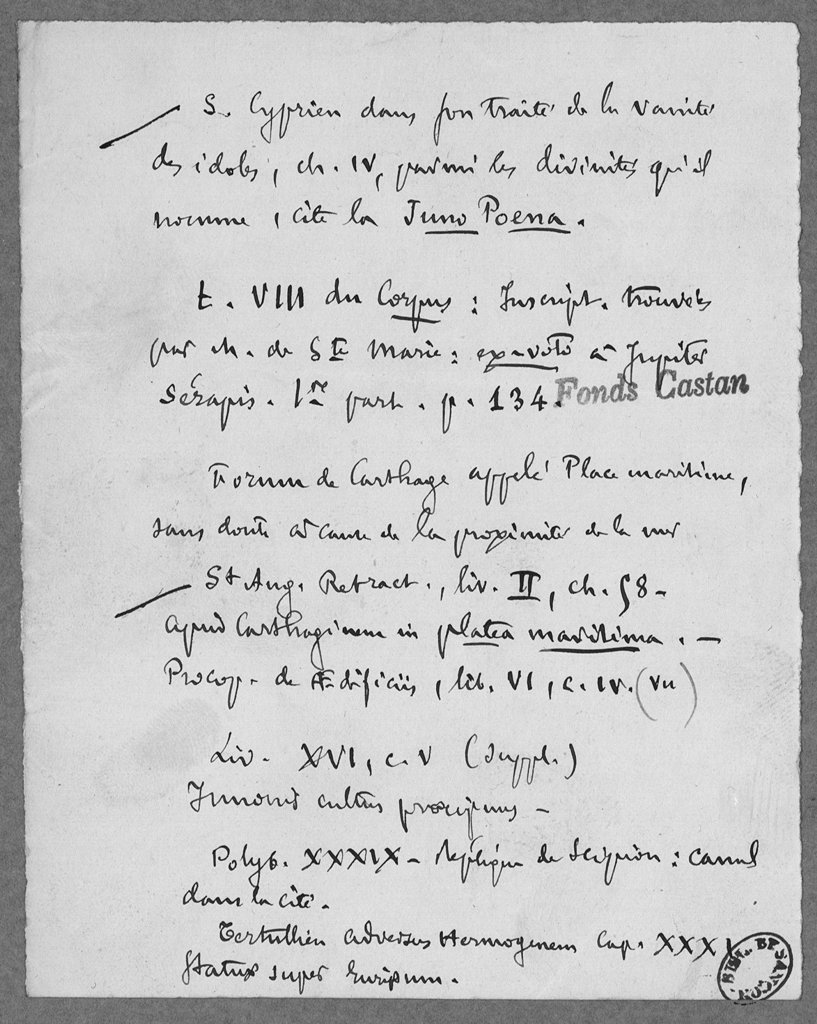 S. Cyprien dans son traité de la vanité
des idoles, ch. IV, parmi les divinités qu'il
nomme, cite la Juno Poena.
t. VIII du Corpus : Inscript. trouvées
par M. de Ste Marie : ex-voto à Jupiter
Sérapis. 1re part. p. 134.
Fonds Castan
Forum de Carthage appelé Place maritime,
sans doute à cause de la proximité de la mer
St Aug. Retract., liv. II, ch. 58 -
apud Carthaginem in platea maritima. -
Procop. de Ædificiis, lib. VI, c. IV. (VII)
Liv. XVI, c. V (suppl.)
Junonis cultus præcipuus -
Polyb. XXXIX - Réplique de Scipion : canal
dans la cité.
Tertullien adversus Hermogenem Cap. XXXI
Status super Euripum.